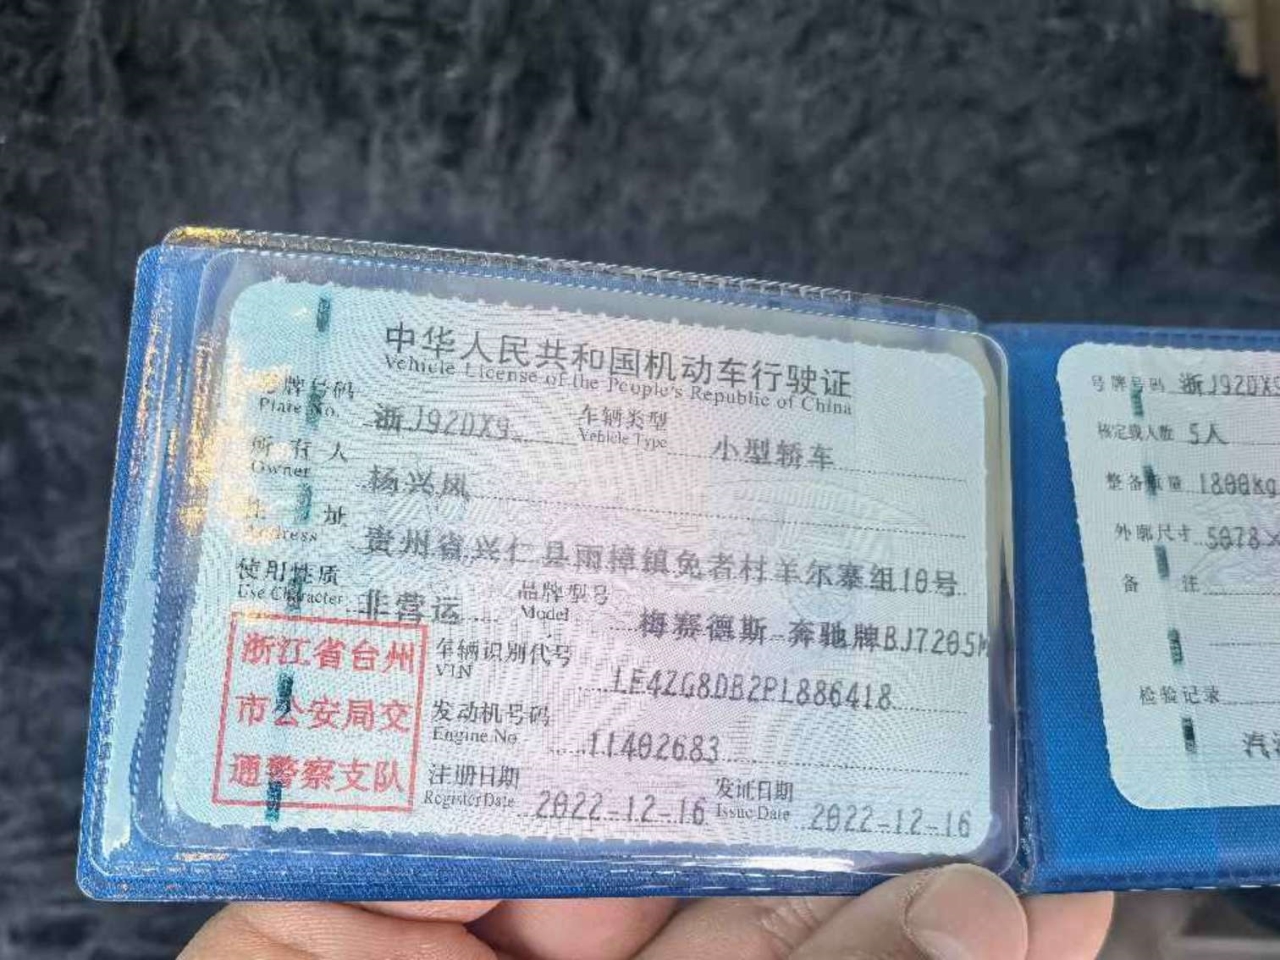 中华人民共和国机动车行驶证
Vehicle License of the People's Republic of China
号牌号码 浙J92DX9 车辆类型 小型轿车
Plate No. Vehicle Type
所有人 杨兴凤
Owner
住址 贵州省兴仁县雨樟镇免者村羊尔寨组10号
Address
使用性质 非营运 品牌型号 梅赛德斯-奔驰牌BJ7205M
Use Character Model
浙江省台州
市公安局交
通警察支队
车辆识别代号 LE4ZG8DB2PL886418
VIN
发动机号码 11402683
Engine No.
注册日期 2022-12-16 发证日期 2022-12-16
Register Date Issue Date
号牌号码 浙J92DX9
核定载人数 5人
整备质量 1800kg
外廓尺寸 5078×
备注
检验记录